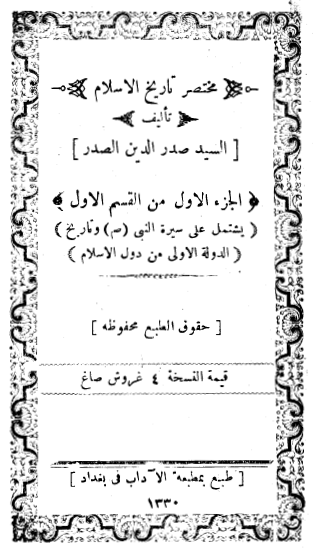 مختصر تاريخ الاسلام
تأليف
[ السيد صدر الدين الصدر ]
﴿ الجزء الاول من القسم الاول ﴾
( يشتمل على سيرة النبي (ص) وتاريخ )
( الدولة الاولى من دول الاسلام )
[ حقوق الطبع محفوظه ]
قيمة النسخة ٤ غروش صاغ
[ طبع بمطبعة الآداب في بغداد ]
١٣٣٠